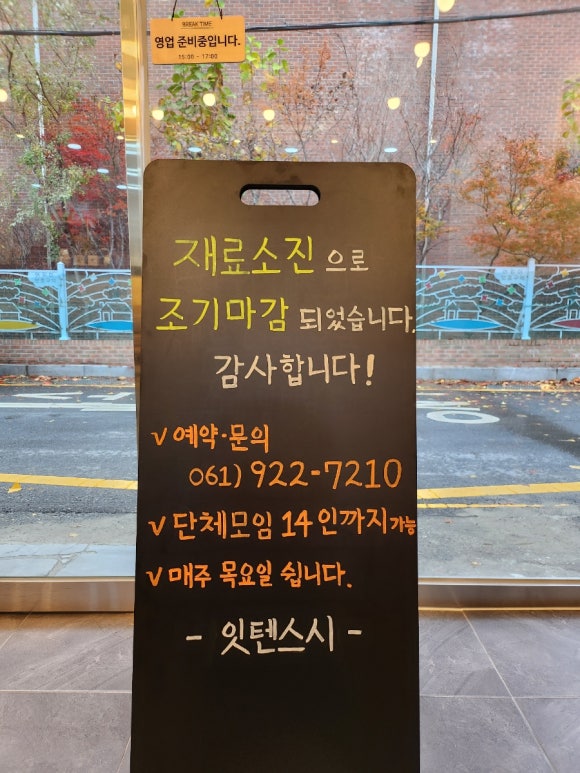 BREAK TIME
영업 준비중입니다.
15:00 - 17:00
재료소진으로
조기마감 되었습니다.
감사합니다!
v 예약·문의
061) 922-7210
v 단체모임 14인까지 가능
v 매주 목요일 쉽니다.
- 잇텐스시 -